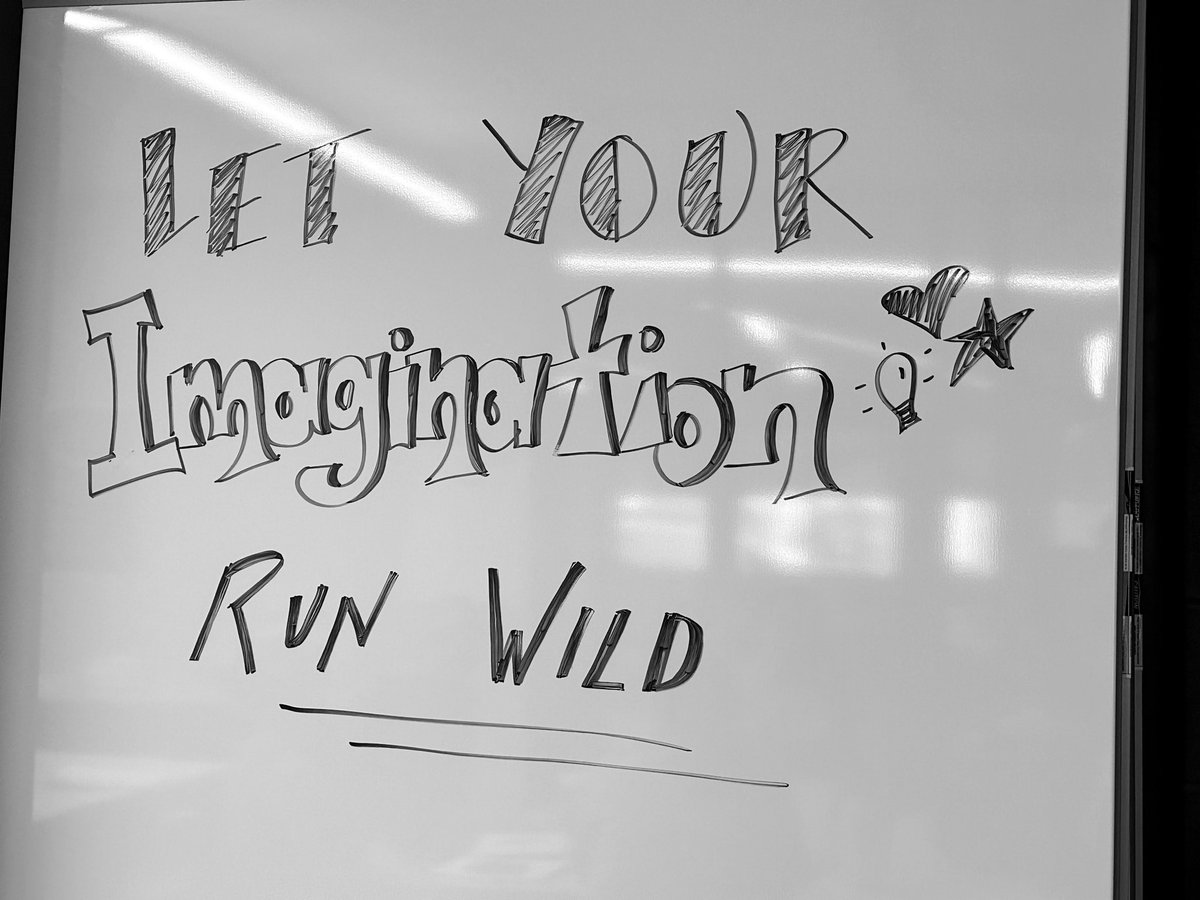 LET YOUR
Imagination
RUN WILD